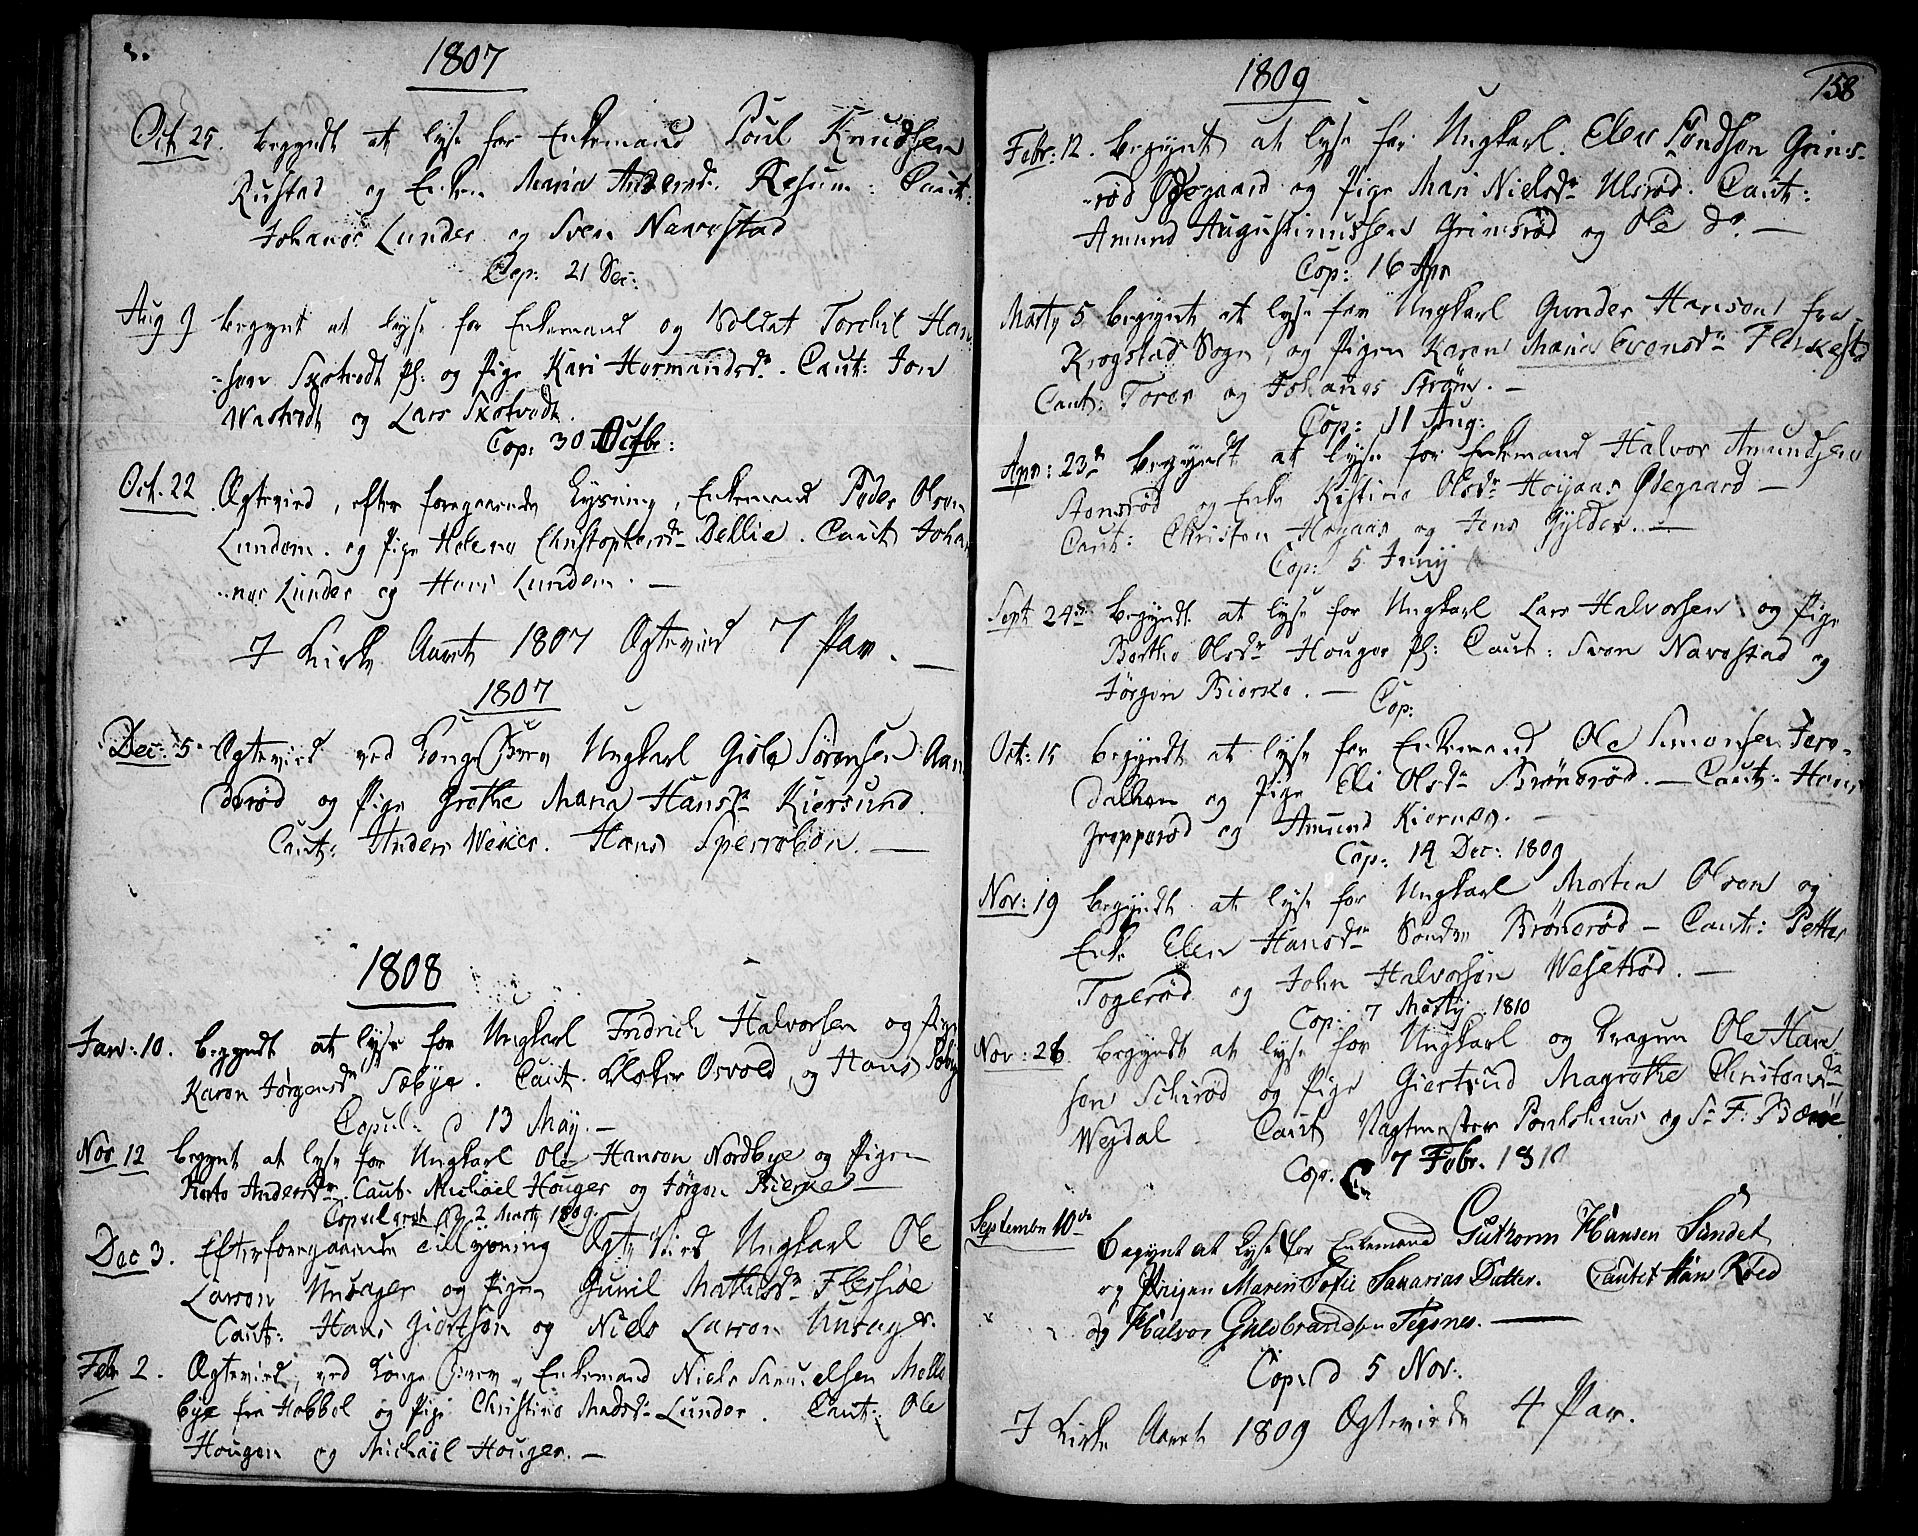 1807
Oct 25. begyndt at lyse for Enkemand Poul Knudsen
Rustad og Enken Maria Andersdr Resum: Caut:
Johanes Lunder og Sven Narvestad
Cop: 21 Dec:
Aug 9 begynt at lyse for Enkemand og Soldat Torchil Han
sen Skotvedt Pl: og Pige Kari Hermandsdr. Caut: Jon
Westvedt og Lars Skotvedt.
Cop: 30 Octbr:
Oct. 22 Ægtevied, efter foregaaende Lysning, Enkemand Peder Olsen
Lundem. og Pige Helena Christophersdr Dellie. Caut Joha
nes Lunder og Hans Lundem. —
I Kirke Aaret 1807 Ægtevied 7 Par. —
1807
Dec: 5 Ægtevied ved Konge Brev Ungkarl Gisle Sørensen Aan
derød og Pige Grethe Maria Hansdr Kiersund.
Caut: Anders Weker. Hans Sperrebøn. —
1808
Jan: 10. begyndt at lyse for Ungkarl Fridrich Halvorsen og Pige
Karen Jørgensdr Sæbye. Caut. Osvold og Hans Sæby
Copul: d 13 May. —
Nov 12 begynt at lyse for Ungkarl Ole Hansen Nordbye og Pigen
Andersdr. Caut. Michael Houger og Jørgen Bierke —
Copuleret d 2 Marty 1809.
Dec 3. Efterforegaaende Tillysning Ægte Vied Ungkarl Ole
Larsen Unsager og Pigen Gunil Mathisdr Flessiøe
Caut: Hans Giertsen og Niels Larsen Unsager.
Febr 2. Ægtevied, ved Konge Brev, Enkemand Niels Samuelsen Melle
bye fra Hobbel og Pige Christine Madsdr Lunder. Caut: Ole
Hougen og Michael Houger. —
158
1809
Febr: 12. begynt at lyse for Ungkarl. Elen Tøndsen Grims-
rød Ødegaard og Pige Mari Nielsdr Ulsrød. Caut:
Amund Augustinussen Grimsrød og Ole do. —
Cop: 16 Apr
Marty 5 begynt at lyse for Ungkarl Gunder Hansen fra
Krogstad Sogn, og Pigen Karen Maria Evensdr
Caut: Tores og Johanes Strøm. —
Cop: 11 Aug:
Apr: 23de begyndt at lyse for Enkemand Halvor Amundsen
Stensrød og Enke Kistine Olsdr Hoyaas Ødegaard —
Caut: Christen Høyaas og Jens Gylder. —
Cop: 5 Juny
Sept 24de begyndt at lyse for Ungkarl Lars Halvorsen og Pige
Berthe Olsdr Houger Pl: Caut: Sven Narvestad og
Jørgen Bierke. — Cop:
Oct: 15 begyndt at lyse for Enkemand Ole Simonsen Jero-
dalhen og Pige Eli Olsdr Brønerød. — Caut. Hans
Grepperød og Amund Kiernes. —
Cop: 14 Dec: 1809
Nov: 19 begyndt at lyse for Ungkarl Morten Olsen og
Enke Elen Hansdr Søndre Brønerød — Caut: Petter
Togerød og John Halvorsen Wesetrød. —
Cop: 7 Marty 1810
Nov: 26 begyndt at lyse for Ungkarl og Dragun Ole Han
sen Schirød og Pige Giertrud Magrethe Christensdr
Wejdal. Caut Vagtmester og Sr F:
Cop. 7 Febr. 1810
Septembr 10de begynt at lyse for Enkemand Guttorm Hansen Sundet
og Pigen Maren Sofie Sacarias Datter. Cautet Hans Røed
og Halvor Guldbrandsen Tegsnes. —
Cop. d 5 Nov:
I Kirke Aaret 1809 Ægteviede 4 Par.